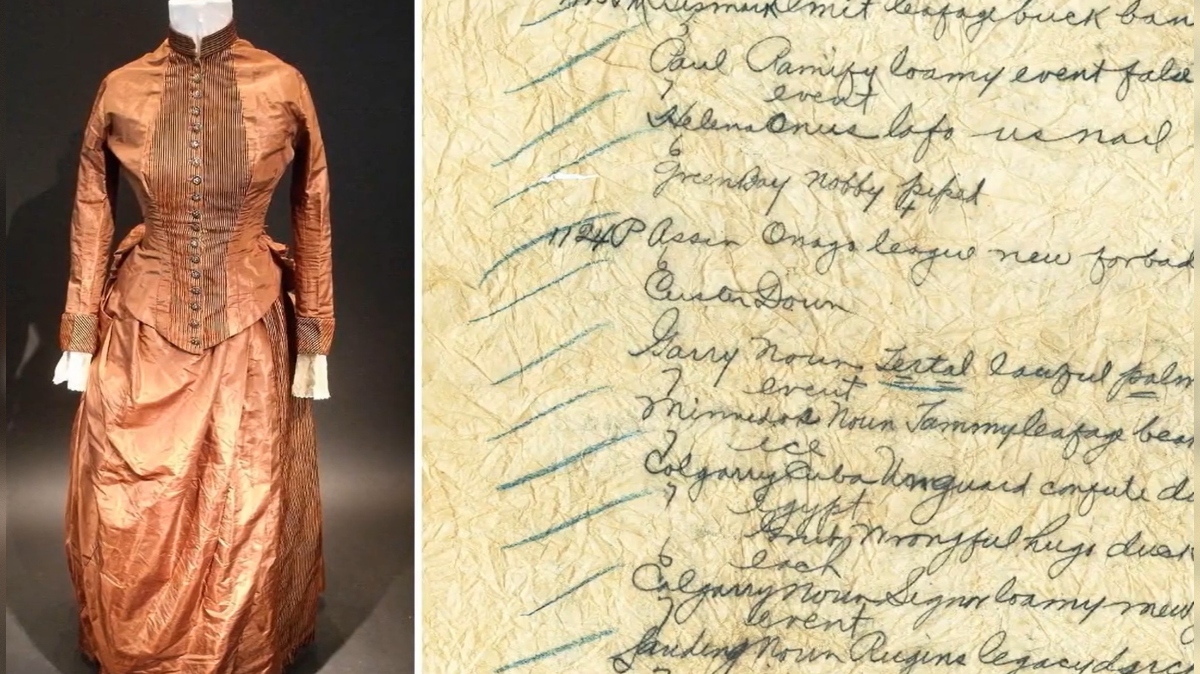 Bismark Omit leafage buck ban
Paul Ramify loamy event false
7 event
Helena Onus lofo us nail
6
Greenbay nobby piped
1124P Assin Onago league new forbad
6
Custer Down
Garry Noun Tertal lawful palm
7 event
Minnedos Noun Jammy leafage bear
7 ice
Calgarry Cuba Unguard confute d
7 Egypt
Grub wrongful hugo duck
each
Calgarry Noun Signor loamy new
7 event
Landing Noun Rugins legacy